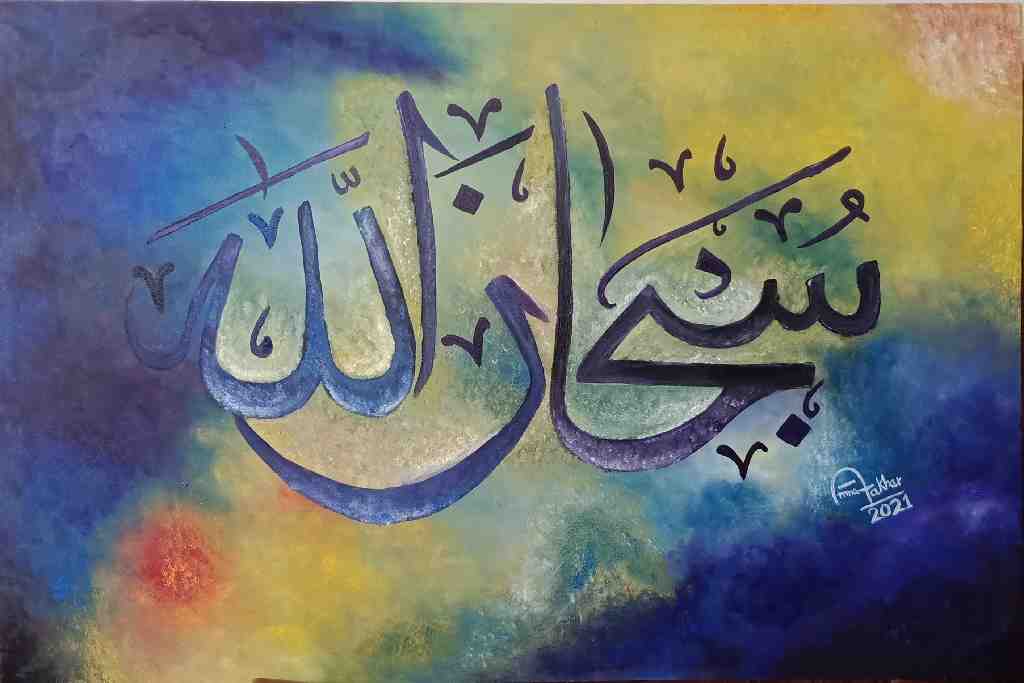 سُبْحَانَ اللّٰهِ
Amna Fakhar
2021